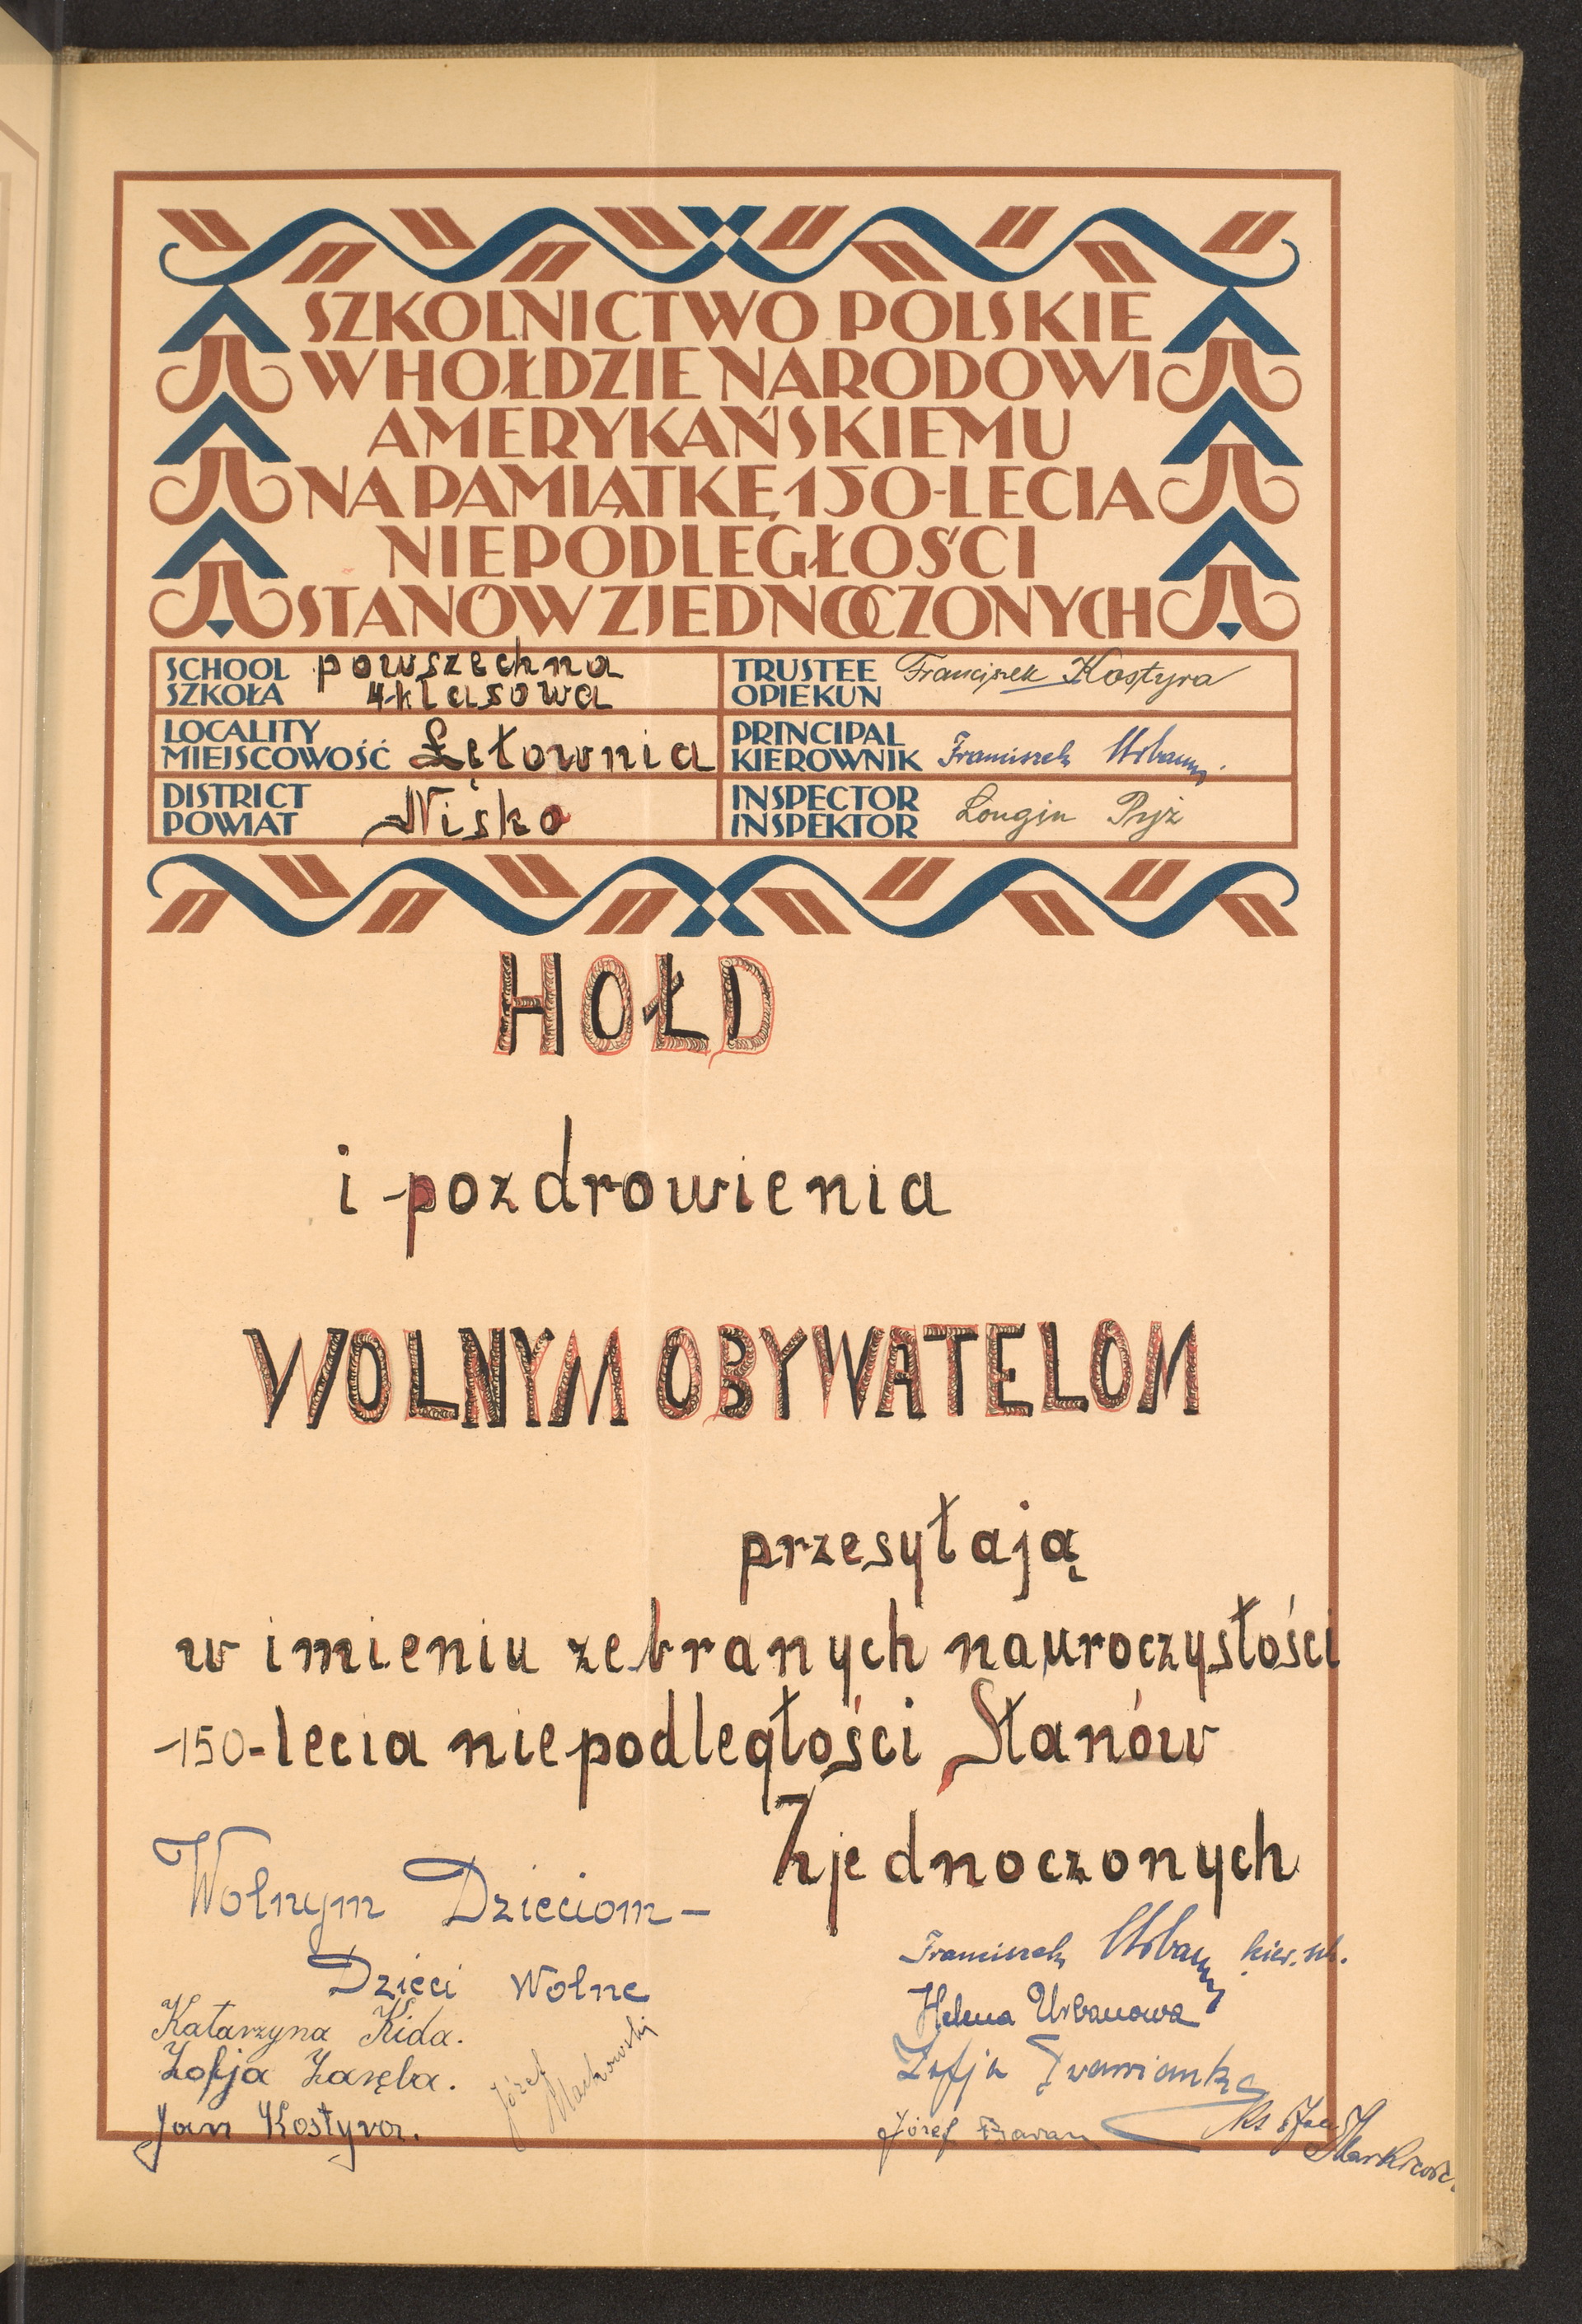 SZKOLNICTWO POLSKIE
W HOŁDZIE NARODOWI
AMERYKAŃSKIEMU
NA PAMIĄTKĘ 150-LECIA
NIEPODLEGŁOŚCI
STANÓW ZJEDNOCZONYCH
SCHOOL SZKOŁA
powszechna
4-klasowa
TRUSTEE OPIEKUN
Franciszek Kostyra
LOCALITY MIEJSCOWOŚĆ
Łętownia
PRINCIPAL KIEROWNIK
Franciszek Urbanny
DISTRICT POWIAT
Nisko
INSPECTOR INSPEKTOR
Longin
HOŁD
i pozdrowienia
WOLNYM OBYWATELOM
przesyłają
w imieniu zebranych na uroczystości
150-lecia niepodległości Stanów
Zjednoczonych
Wolnym Dzieciom –
Dzieci Wolne
Katarzyna Kida.
Zofja Zaręba.
Jan Kostyra.
Józef
Franciszek Urbanny kier. szk.
Helena Urbanowa
Zofja
Józef Baran